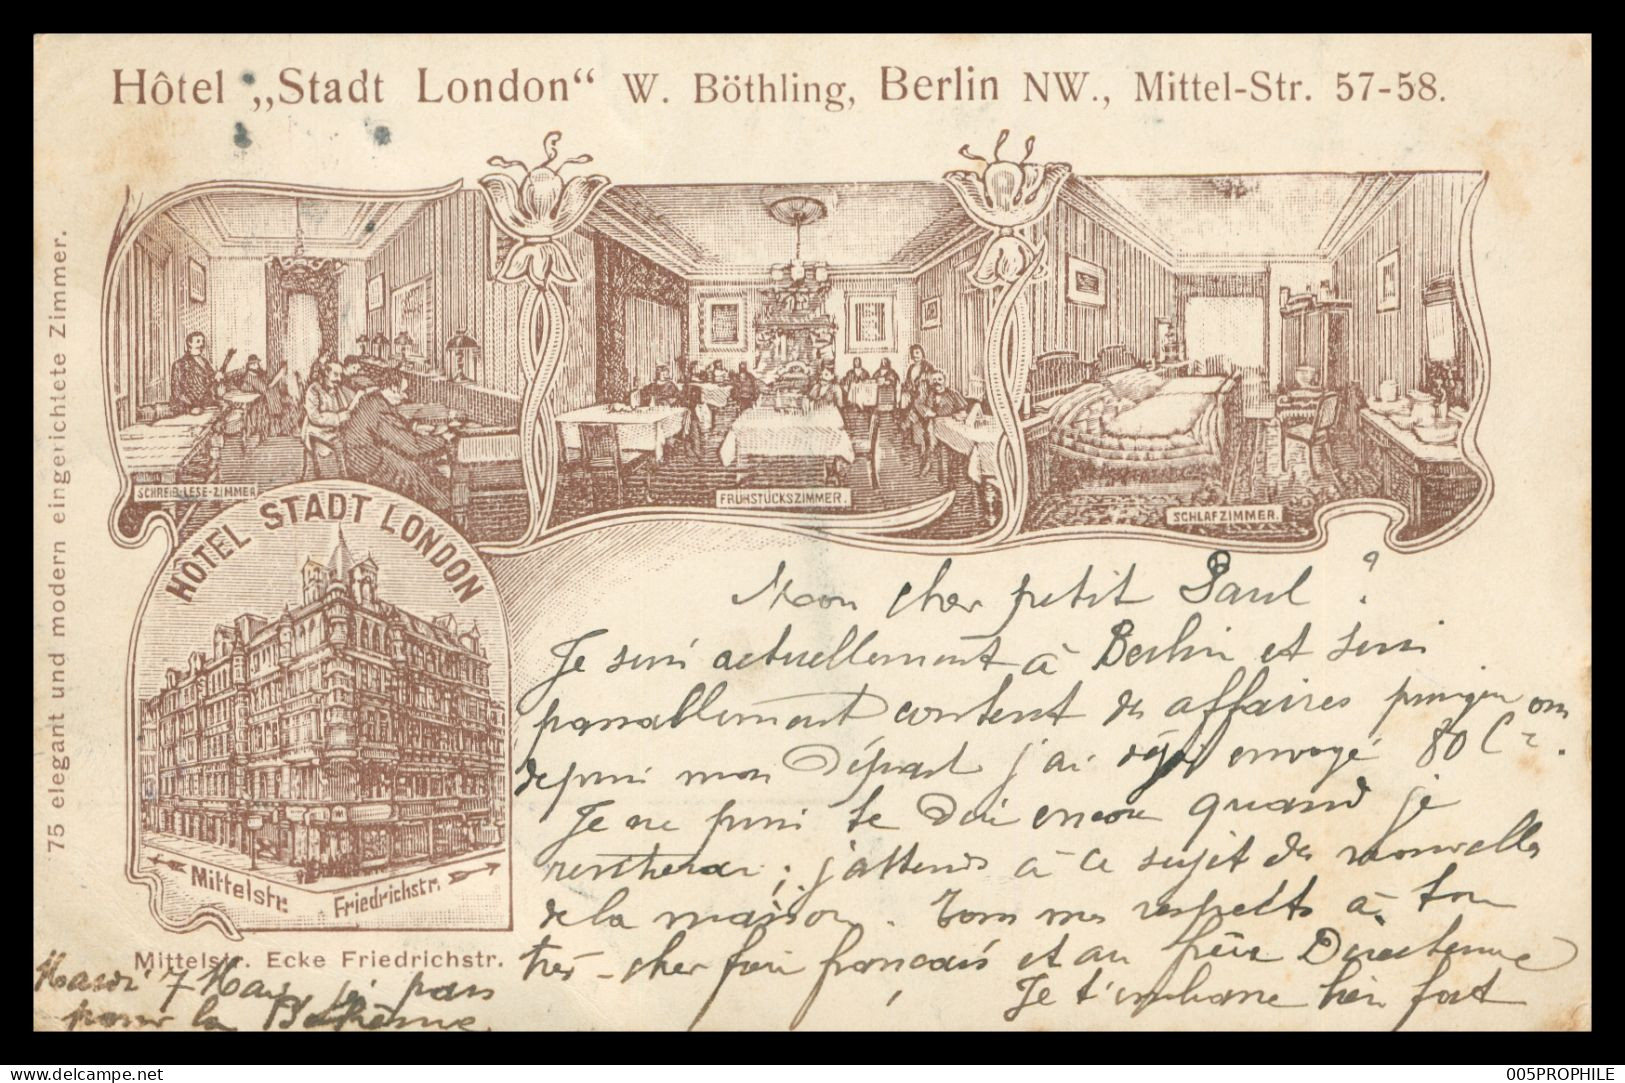 Hôtel „Stadt London“ W. Böthling, Berlin NW., Mittel-Str. 57-58.
75 elegant und modern eingerichtete Zimmer.
SCHREIB-LESE-ZIMMER
FRÜHSTÜCKSZIMMER.
SCHLAFZIMMER.
HÔTEL STADT LONDON
Mittelstr.
Friedrichstr.
Mittelstr. Ecke Friedrichstr.
Mon cher petit Paul ?
Je suis actuellement à Berlin et suis
content des affaires
depuis mon Départ j'ai déjà envoyé 80 C
Je ne puis te Dire encore quand je
rentrerai ; j'attends à ce sujet des nouvelles
de la maison. Tous mes respects à ton
très-cher français et au frère Directeur
Je t'embrasse bien fort
Mardi 7 Mai je pars
pour la Bohême.
delcampe.net
005PROPHILE